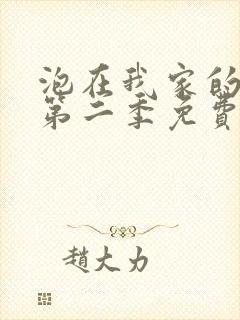 泡在我家的
第二季免費
趙大力